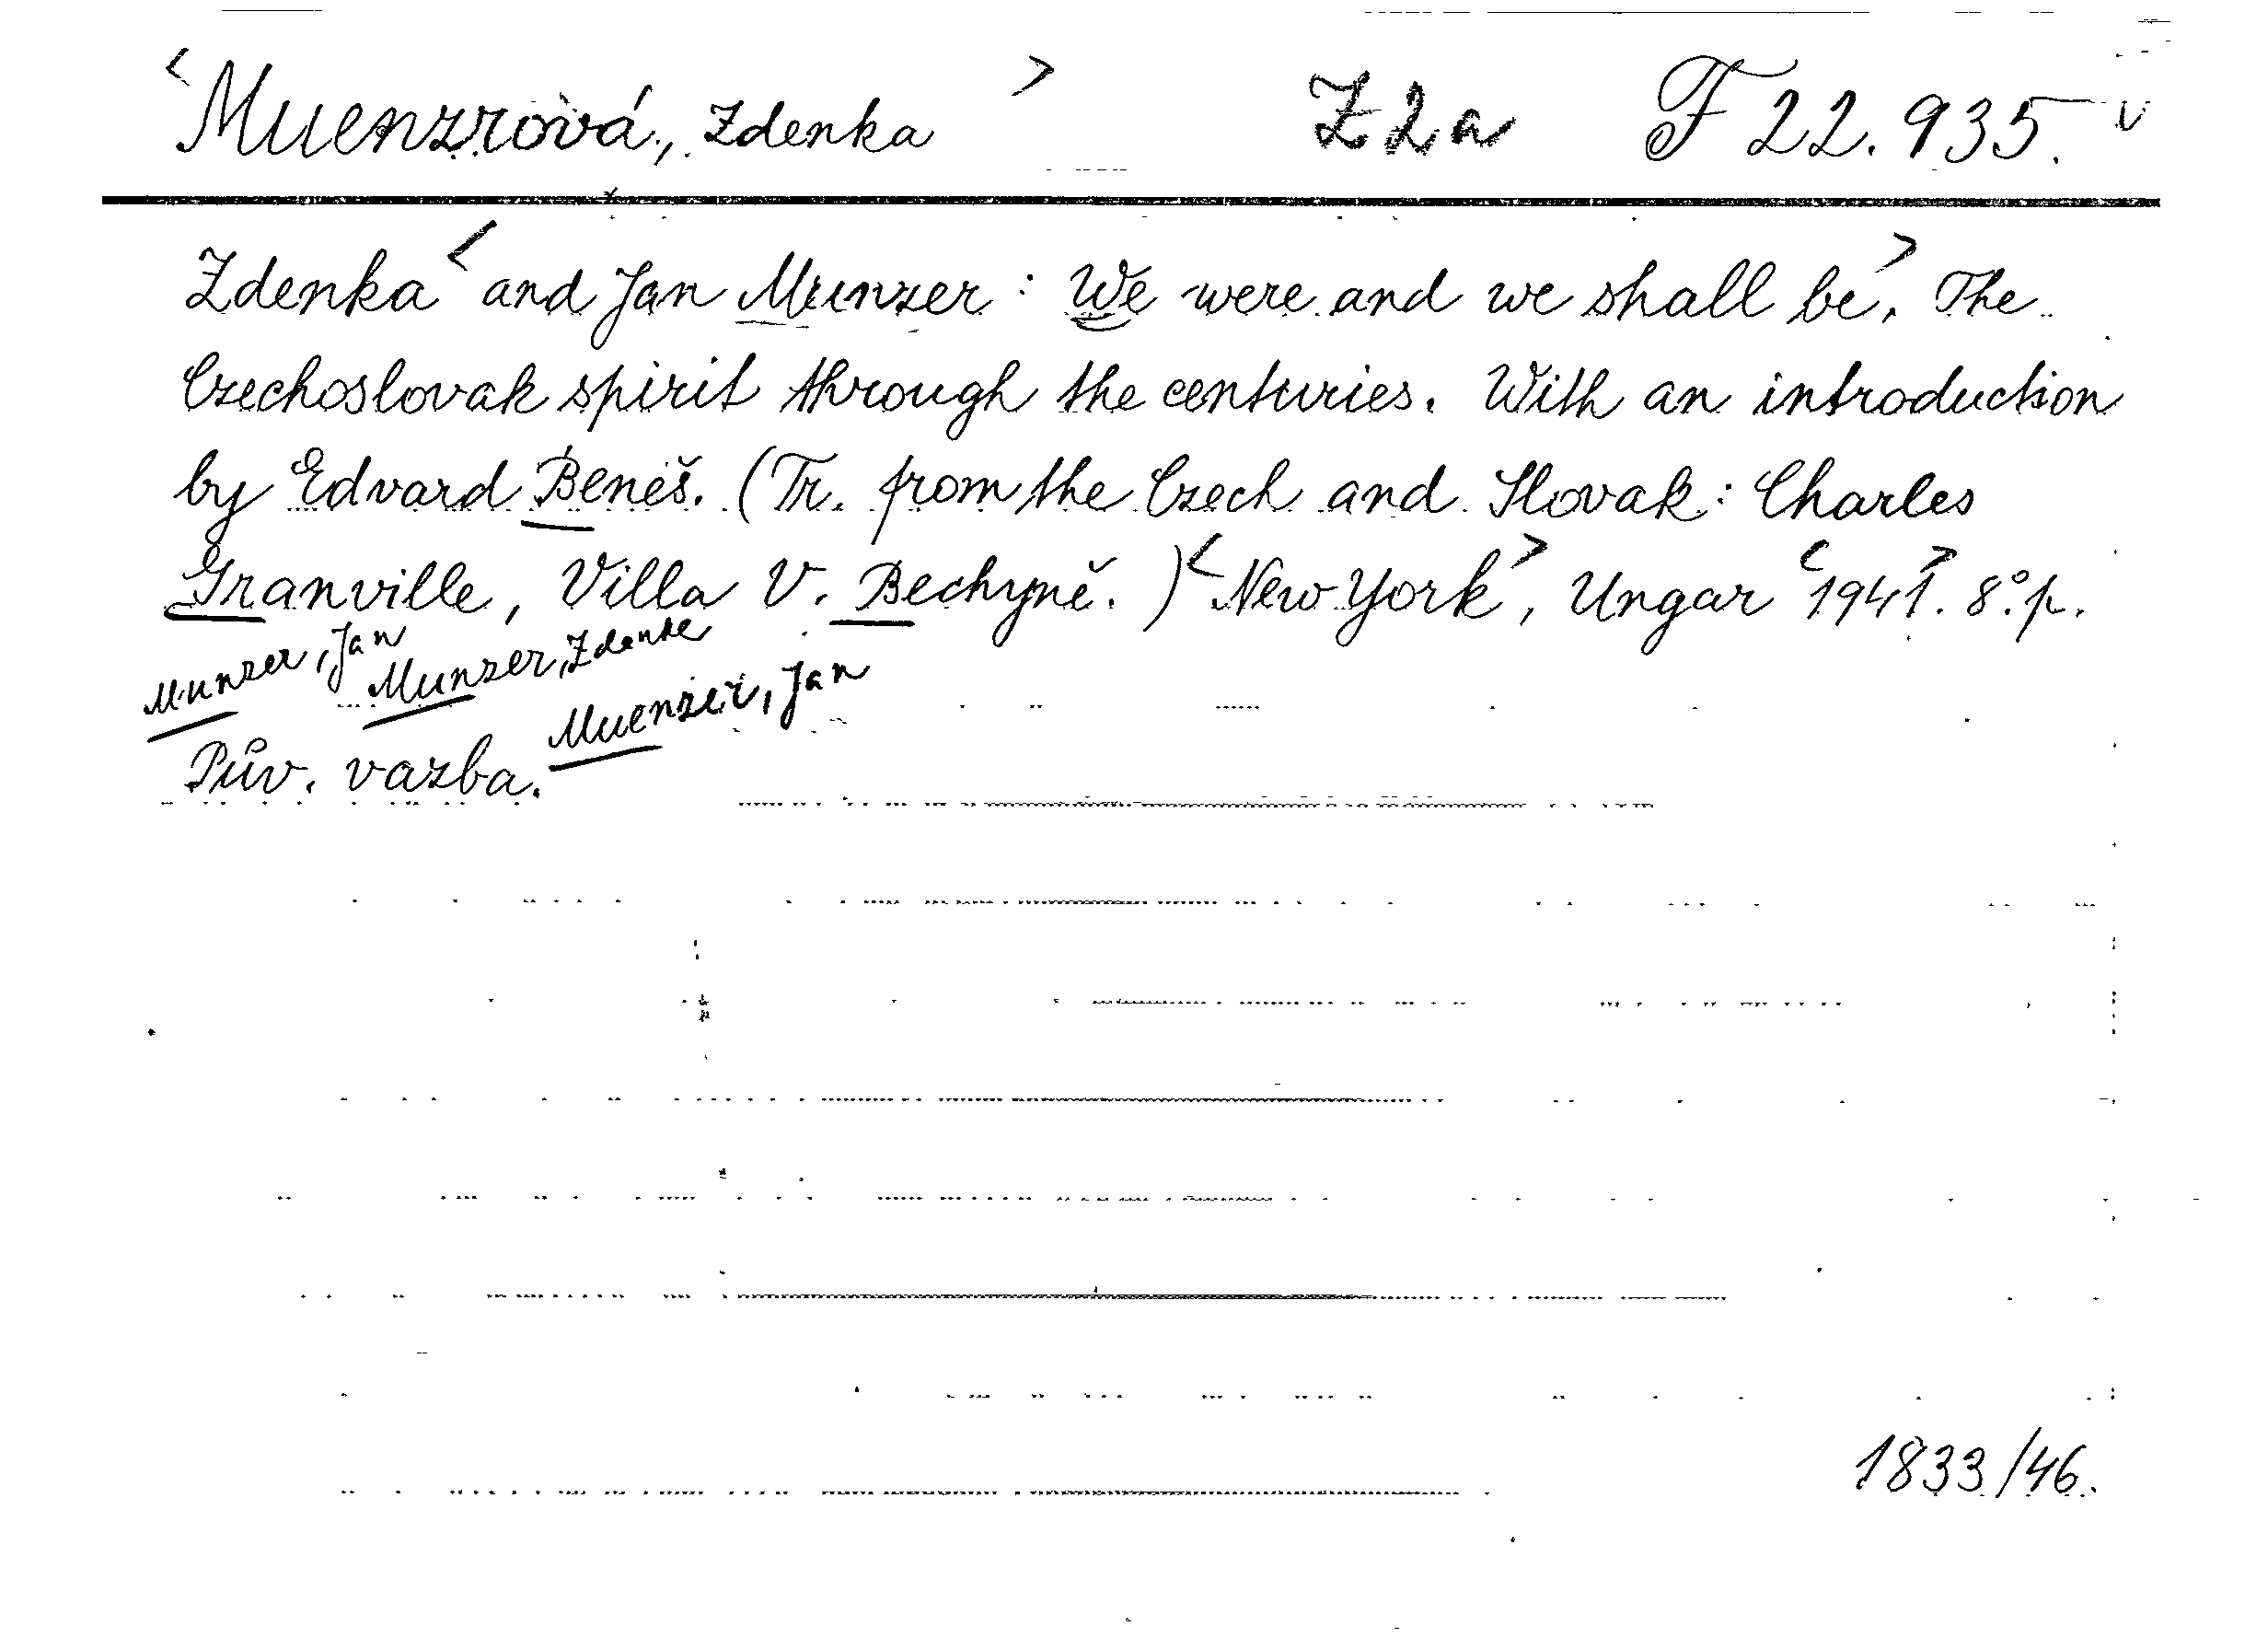 <Muenzrová, Zdenka> Z2a F 22.935. v
Zdenka <and Jan Munzer: We were and we shall be>. The
Czechoslovak spirit through the centuries. With an introduction
by Edvard Beneš. (Tr. from the Czech and Slovak: Charles
Granville, Villa V. Bechyně.) <New York>, Ungar <1941>. 8°. p.
Munzer, Jan Munzer, Zdenke
Muenzer, Jan
Pův. vazba.
1833/46.